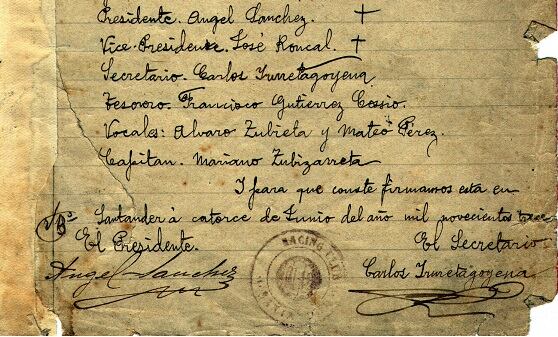 Presidente. Angel Sanchez. †
Vice-Presidente. José Roncal. †
Secretario. Carlos Yruretagoyena
Tesorero. Francisco Gutierrez Cossio.
Vocales: Alvaro Zubieta y Mateo Pérez.
Capitan. Mariano Zubizarreta
I para que conste firmamos esta en
Santander á catorce de Junio del año mil novecientos trece
Vº Bº
El Presidente. El Secretario
Angel Sanchez Carlos Yruretagoyena
RACING CLUB